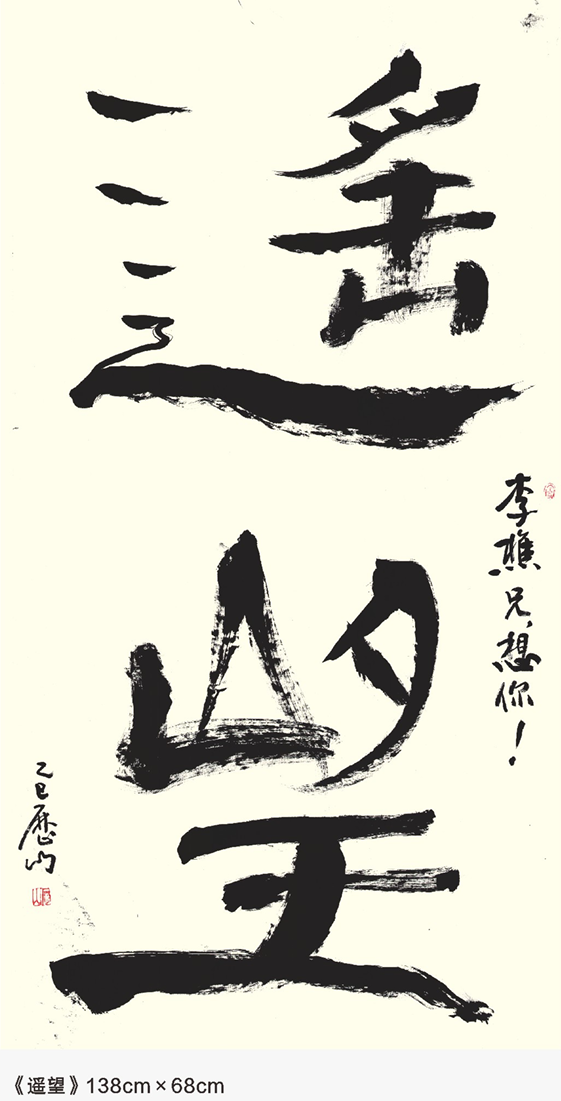 遥望
李樵兄,想你!
乙巳歷山
《遥望》138cm×68cm